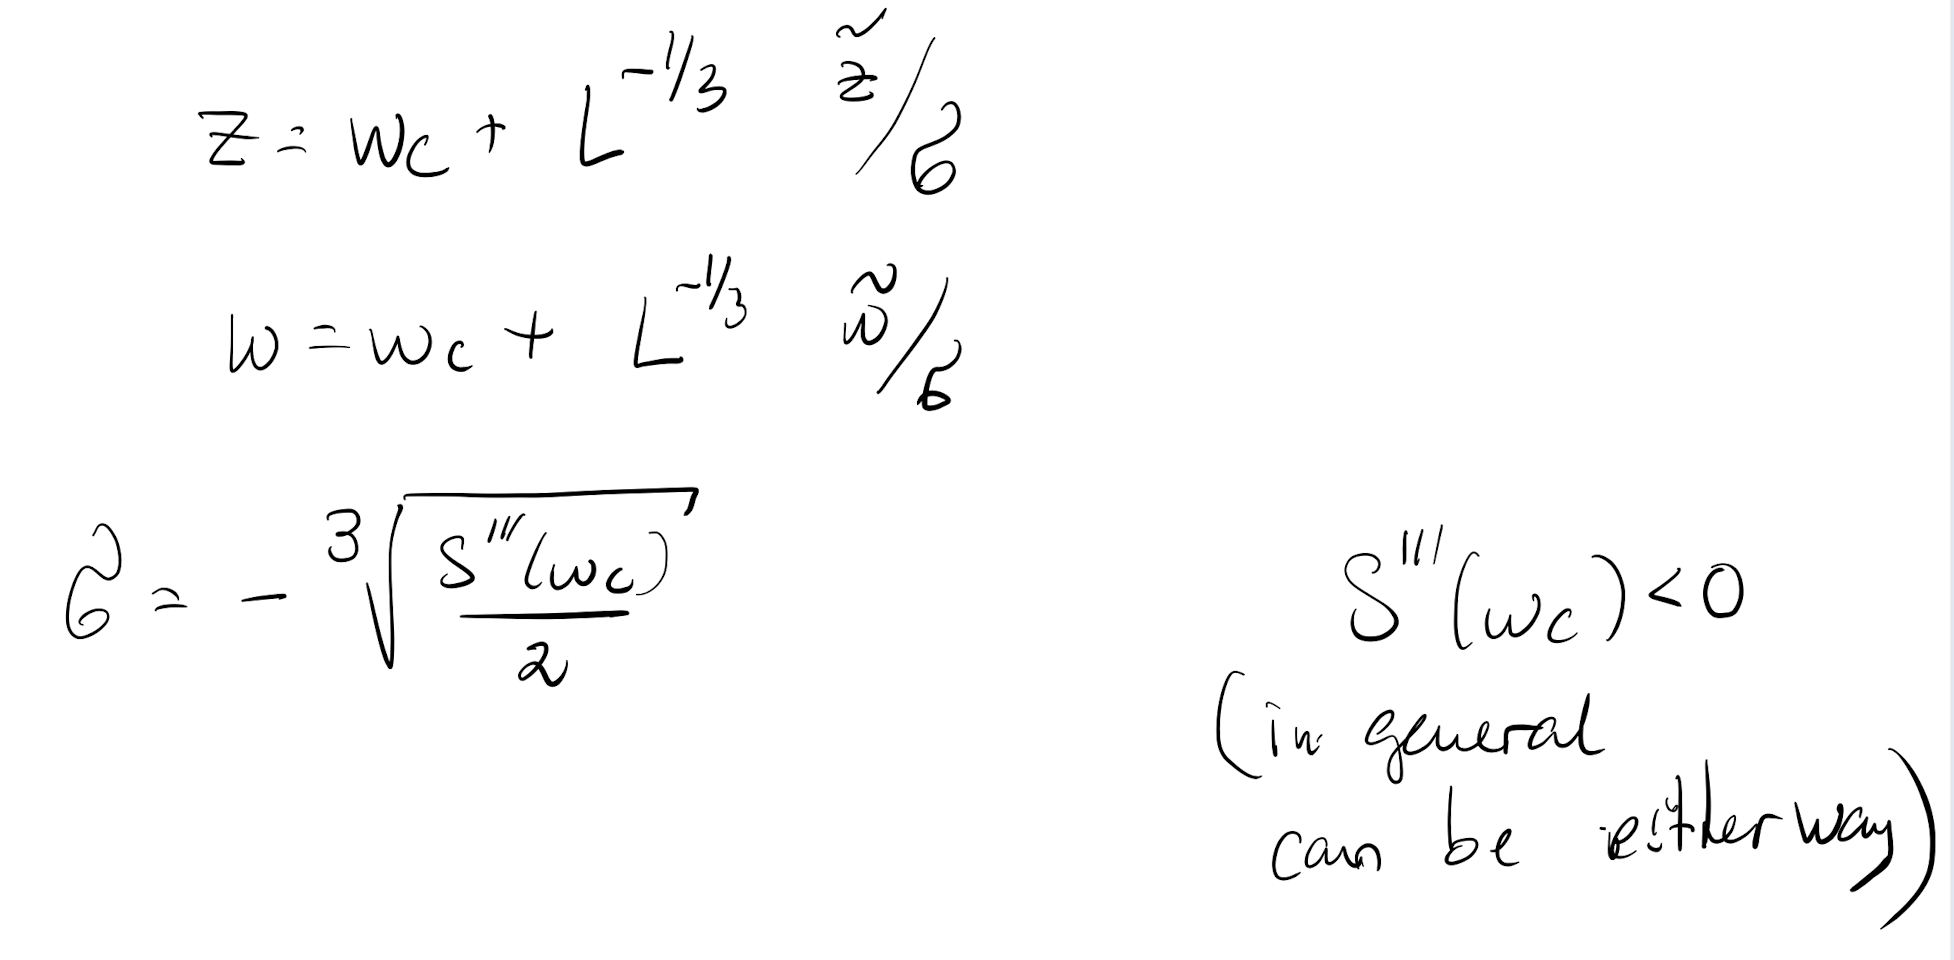 z = w_c + L^{-1/3} z̃/σ
w = w_c + L^{-1/3} w̃/σ
σ = - ∛(S'''(w_c)/2)
S'''(w_c) < 0
(in general
can be either way)